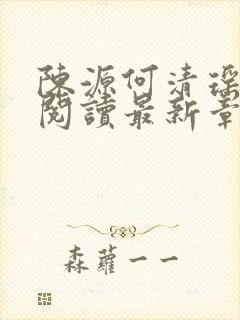 陳源何清瑤
閱讀最新章
森蘿一一